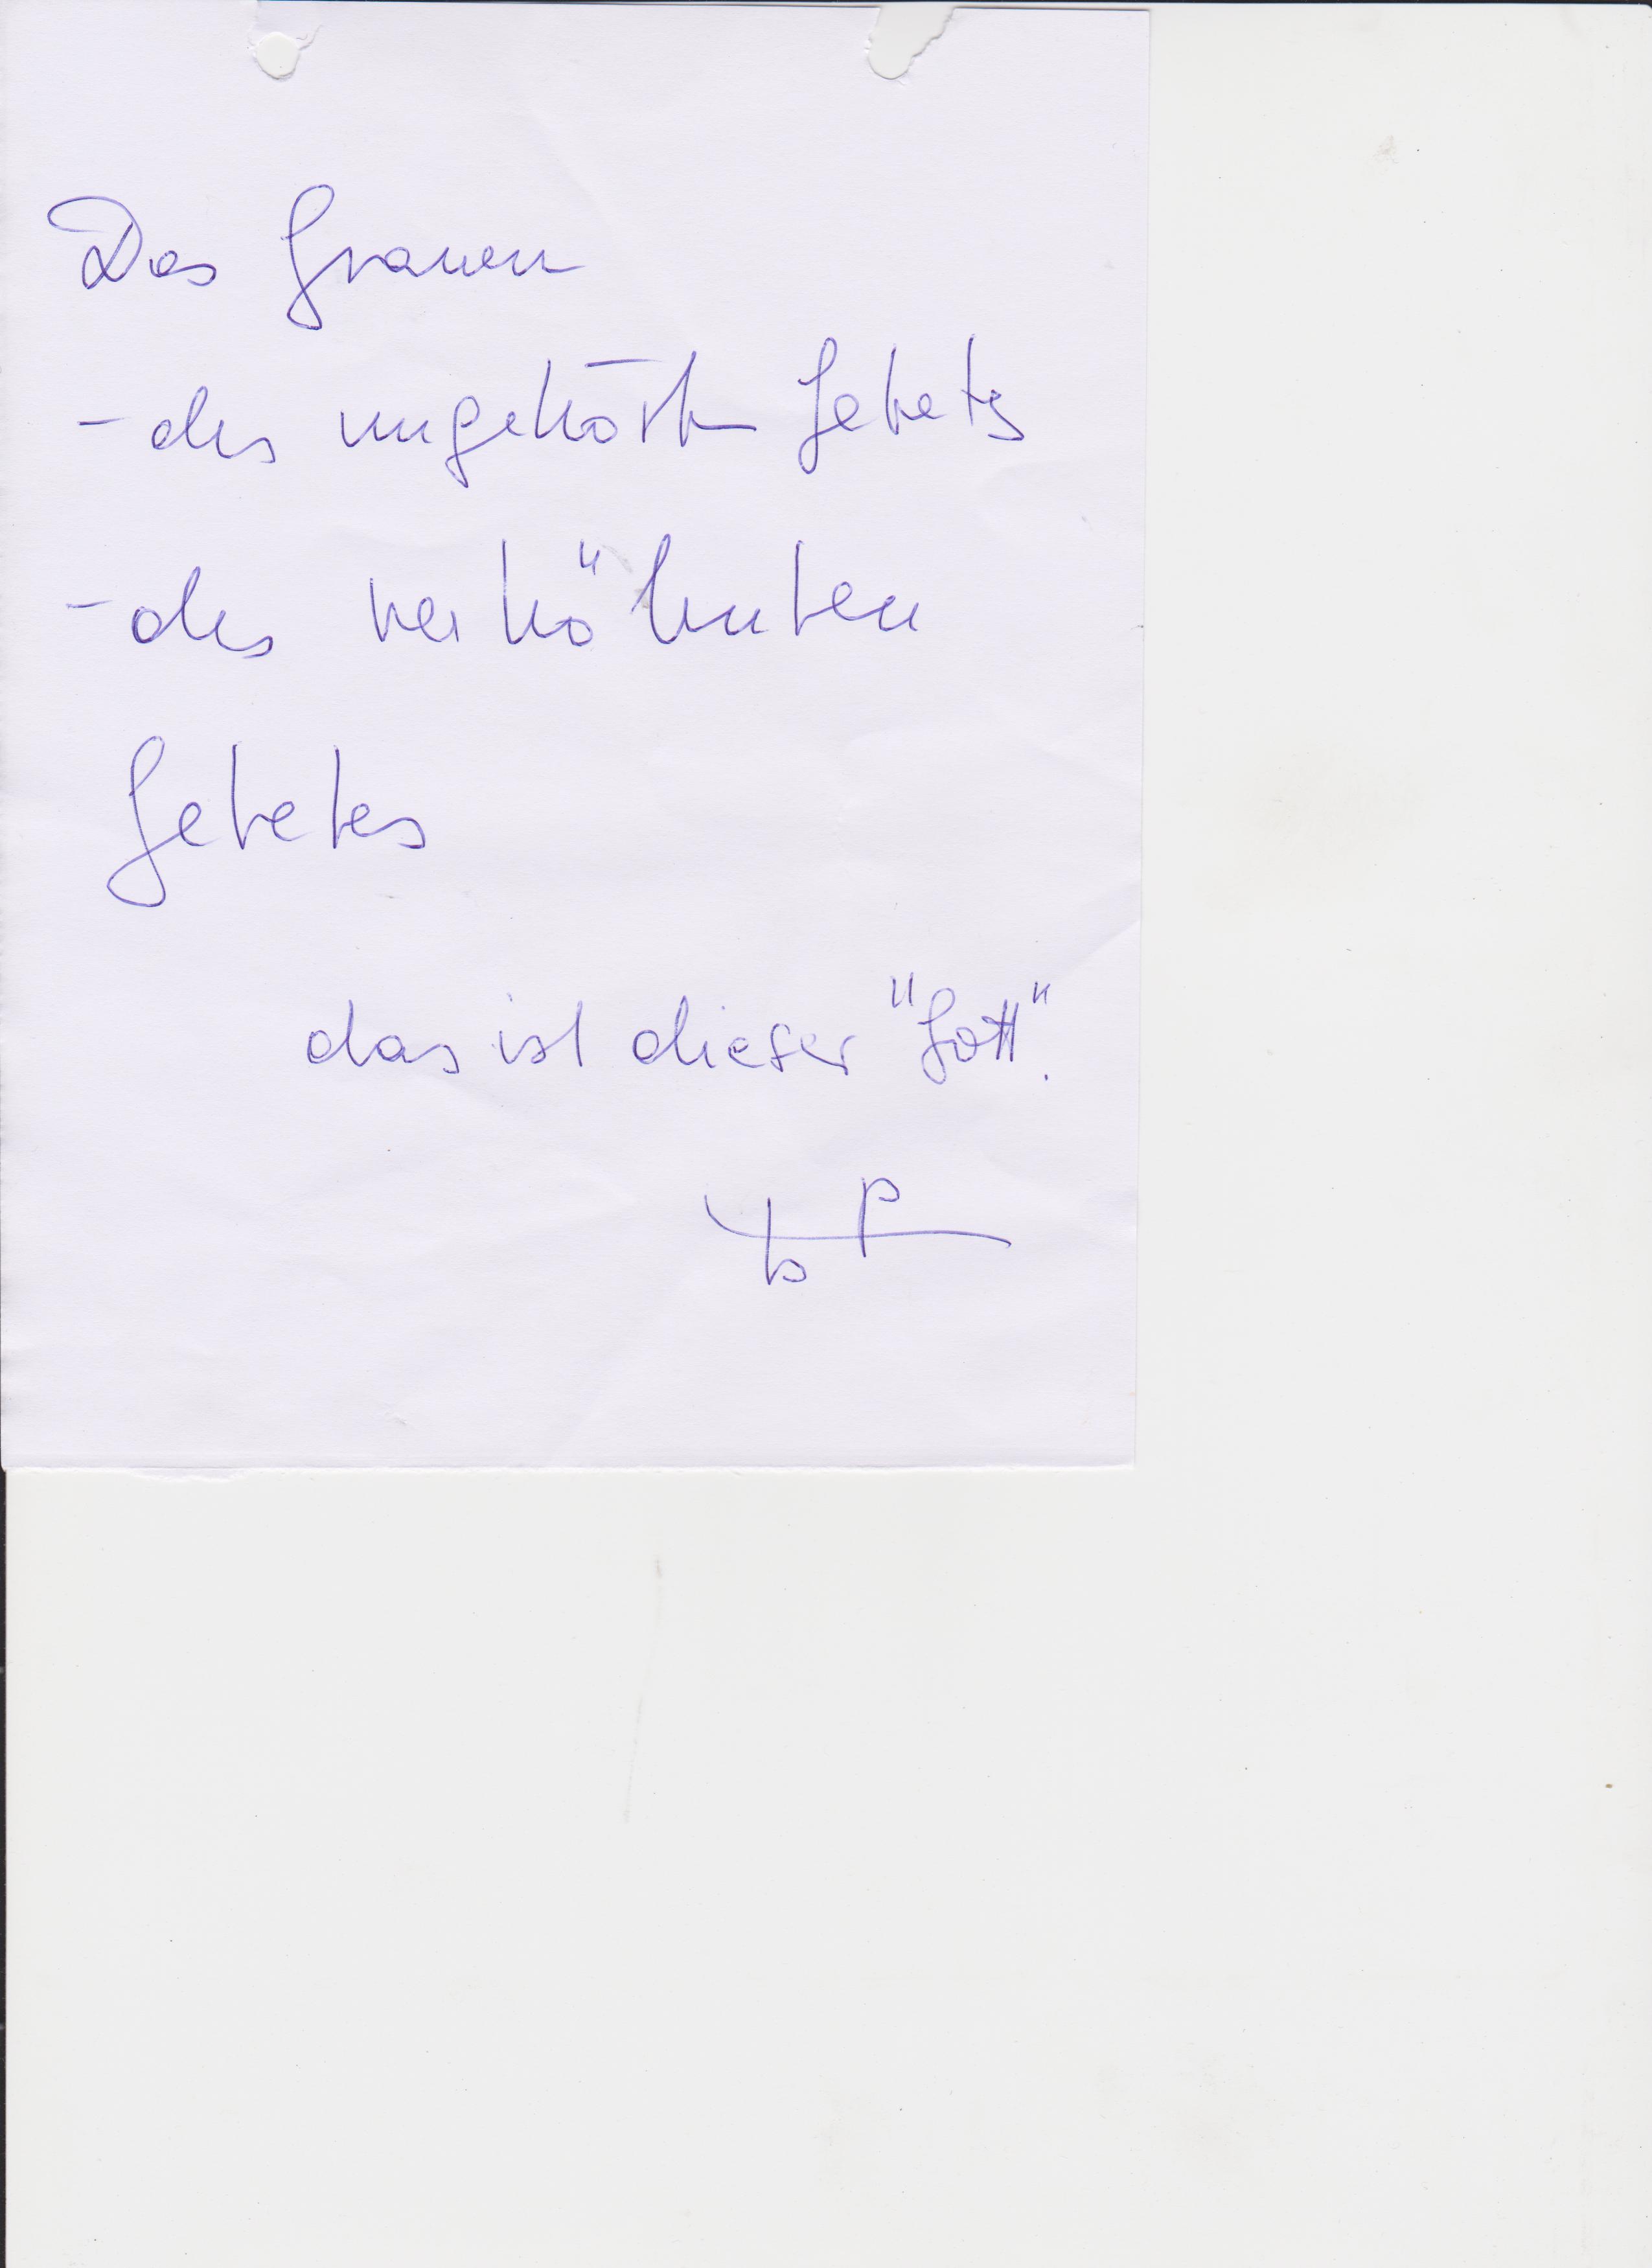 Das Grauen
- des ungehörten Gebets
- des verhöhnten
Gebetes
das ist dieser "Gott".